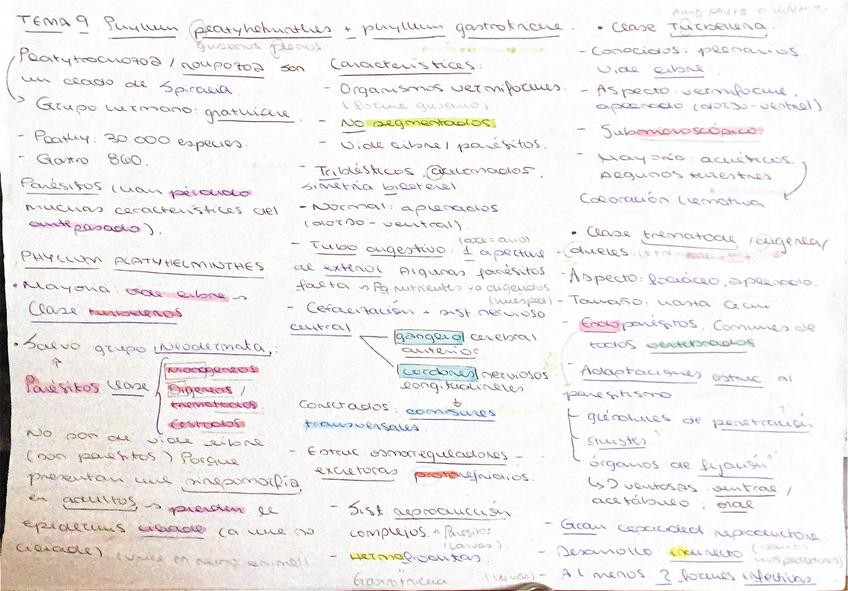 TEMA 9 Phyllum platyhelminthes + phyllum gastrotricha.
gusanos planos
Platythochoza / rouphozoa son
un clado de Spiralia.
Grupo hermano: gnathifera.
- Plathy: 30 000 especies.
- Gastro 860.
Parásitos (han perdido
muchas características del
antepasado).
PHYLLUM PLATYHELMINTHES
• Mayoría: vida libre →
Clase turbelarios
• Salvo grupo Neodermata,
Parásitos clase
monogeneos
Digeneos /
trematodos
cestodos
No son de vida libre
(son parásitos) Porque
presentan una sinapomorfia
en adultos → pierden la
epidermis ciliada (a una no
ciliada)
Características:
- Organismos vermiformes.
(forma gusano)
- No segmentados
- Vida libre / parásitos.
- Triblásticos, acelomados,
simetría bilateral.
- Normal: aplanados
(dorso-ventral).
- Tubo digestivo: 1 apertura
(boca = ano)
al exterior Algunos parásitos
falta → Pq nutrientes ya digeridos
(huesped)
- Cefalización + sist nervioso
central
ganglio cerebral
anterior
cordones nerviosos
longitudinales
Conectados: comisuras
transversales.
- Estruc osmoreguladoras -
excretoras protonefridios.
- Sist reproducción
complejos. → Parásitos
(larvas)
- Hermafroditas.
Gastrotricha
• Clase Turbellaria.
- Conocidos: planarias
vida libre.
- Aspecto: vermiforme,
aplanado (dorso-ventral)
- Submicroscópico
- Mayoría: acuáticos,
Algunos terrestres
Coloración llamativa
• Clase trematoda / digenea /
duelas.
- Aspecto: foliáceo, aplanado.
- Tamaño: hasta 6cm
- Endoparásitos. Comunes de
todos vertebrados
- Adaptaciones estruc al
parasitismo
- glándulas de penetración
- quistes
- órganos de fijación
↳ 2 ventosas: ventral /
acetábulo, oral
- Gran capacidad reproductora.
- Desarrollo indirecto (varios
hospedadores)
- Al menos 2 formas infectivas